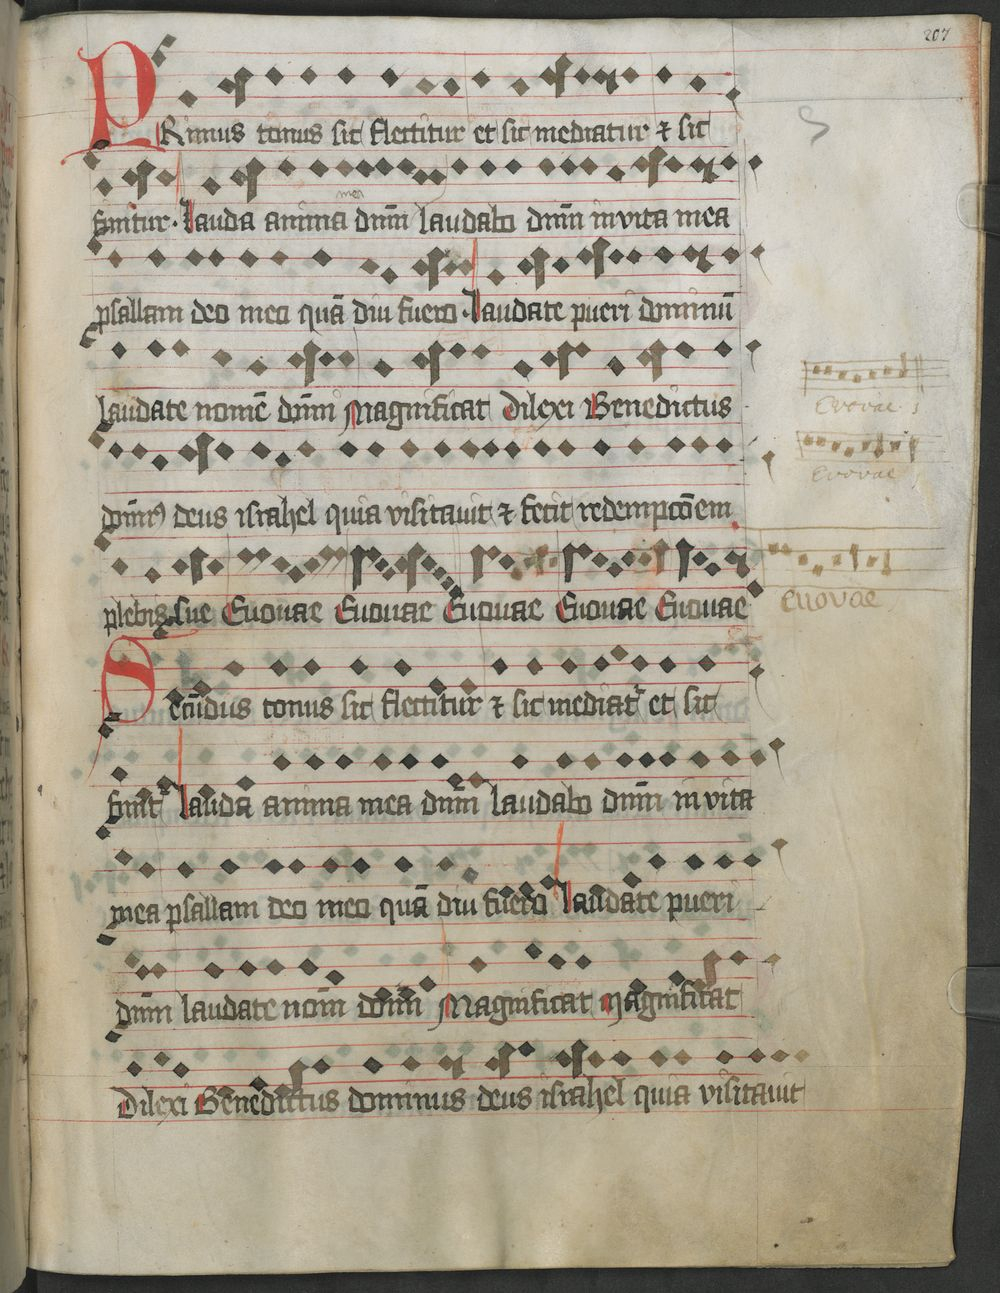 207
PRimus tonus sit flectitur et sic mediatur ⁊ sic
finitur · Lauda anima dnm̄ laudabo dnm̄ in vita mea
mea
psallam deo meo quā diu fuero · Laudate pueri dominū
laudate nomē dnm̄i Magnificat Dilexi Benedictus
Evovae
Evovae
deus israhel quia visitavit ⁊ fecit redempcōem
plebis sue Euouae Euouae Euouae Euouae Euouae
Euovae
tonus sic flectitur ⁊ sic mediatr et sic
Lauda anima mea dnm̄ laudabo dnm̄ in vita
mea psallam deo meo quā diu fuero Laudate pueri
dnm̄ laudate nom̄ Magnificat Magnificat
Dilexi Benedictus dominus deus israhel quia visitauit